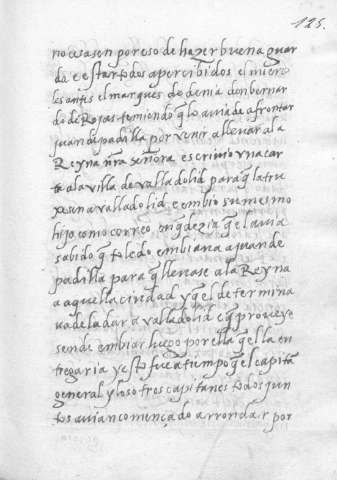 125.
no cesasen por eso de hazer buena guar
da e estar todos apercibidos el mierco
les antes el marques de denia don bernar
do de Rojas temiendo q̃ lo avia de afrontar
juan de padilla por venir a llevar a la
Reyna nr̃a señora escrivio vna car
ta a la villa de valladolid para q̃ la tru
xesen a valladolid e embio su mesmo
hijo como correo en q̃ dezia q̃ el avia
sabido q̃ toledo embiava a juan de
padilla para q̃ llevase a la Reyna
a aquella ciudad y q̃ el determina
va de la dar a valladolid e q̃ proveye
sen de embiar luego por ella q̃ el la en
tregaria y esto fue a tiempo q̃ el capitã
general y los otros capitanes todos jun
tos avian començado a rrondar por